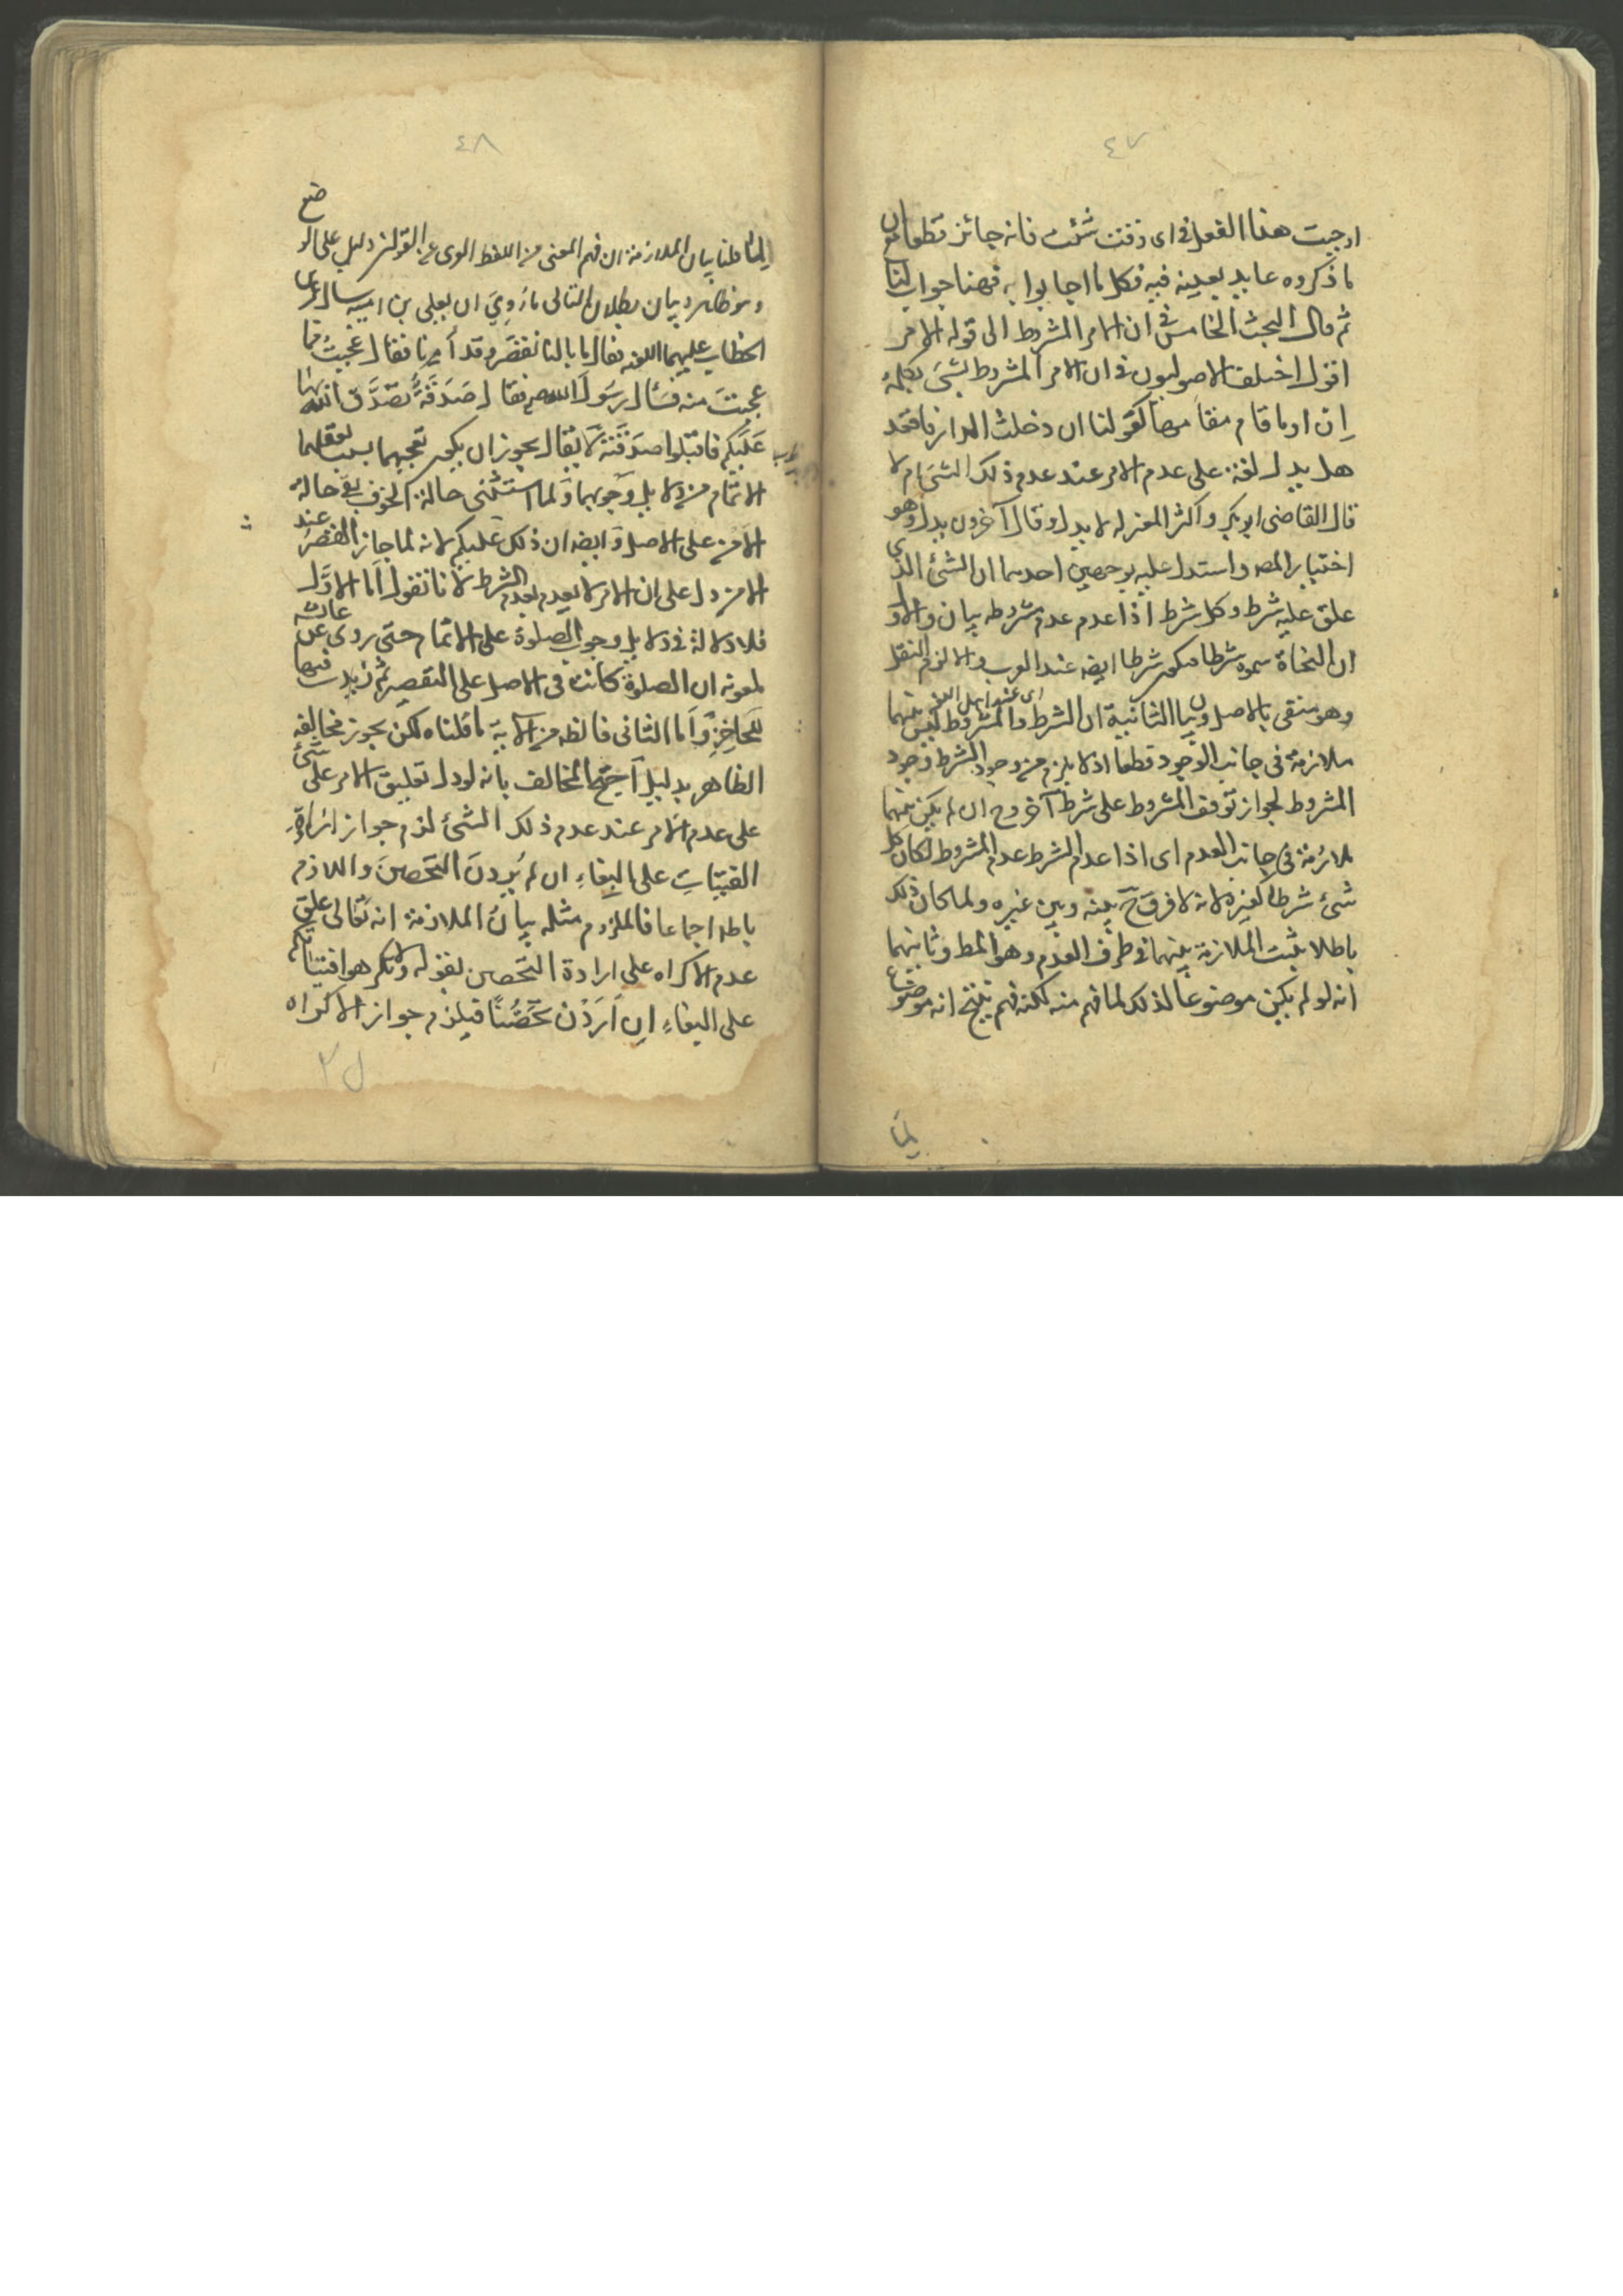 ٤٧
اوجبت هذا الفعل في اى وقت شئت فانه جائز قطعا مع ان
ما ذكروه عايد بعينه فيه فكل ما اجابوا به فهنا جوابنا
ثم قال البحث الخامس في ان الامر المشروط الى قوله الامر
اقول اختلف الاصوليون في ان الامر المشروط بشئ بكلمة
اِن او ما قام مقامها كقولنا ان دخلت الدار فاقعد
هل يدل لغة على عدم الامر عند عدم ذلك الشئ ام لا
قال القاضى ابو بكر واكثر المعتزله لا يدل وقال آخرون يدل وهو
اختيار المصـ واستدل عليه بوجهين احدهما ان الشئ الذى
علق عليه شرط وكل شرط اذا عدم عدم مشروطه بيان الاول
ان النحاة سموه شرطا فيكون شرطا ايضـ عند العرب والا لزم النقل
اى عند اهل اللغة
وهو منفى بالاصل وبيان الثانية ان الشرط والمشروط ليس بينهما
ملازمة فى جانب الوجود قطعا اذ لا يلزم من وجود الشرط وجود
المشروط لجواز توقف المشروط على شرط آخر وح ان لم يكن بينهما
ملازمة فى جانب العدم اى اذا عدم الشرط عدم المشروط لكان كل
شئ شرطا لغيره لانه لا فرق ح بينه وبين غيره ولما كان ذلك
باطلا يثبت الملازمة بينهما في طرف العدم وهو المط وثانيهما
انه لو لم يكن موضوعا لذلك لما فهم منه لكنه فهم ينتج انه موضوع
لما
٤٨
لما قلنا بيان الملازمة ان فهم المعنى من اللفظ دليل على الوضع
وهو ظاهر وبيان بطلان التالى ما رُوِيَ ان يعلى بن اميه سال عن
الخطاب عليهما اللعنه فقال ما بالنا نقصر وقد أمِنا فقال عجبتُ مما
عجبتَ منه فسَأل رسَولَ الله صـ فقال صَدَقَةٌ تصَدَّق الله بها
عَلَيكم فاقبَلوا صدَقَتهُ لا يُقال يجوز ان يكون تعجبهما بسبب تعقلهما
الاتمام من دلايل وجوبهما ولما استثنى حالة الخوف بقى حالة
الامن على الاصل وَايضـ ان ذلك عليكم لانه لما جاز القصرُ عند
الامن دل على ان الامر لا يعدم بعدم الشرط لانا نقول اَما الاوَّل
فلا دلالة في دلايل وجوب الصلوة على الاتمام حتى روى عن عايشه
لمعونه ان الصلوة كانت فى الاصل على التقصير ثم زيدت فيها
للحاضِر وَاَما الثانى فالظه من الاية ما قلناه لكن يجوز مخالفة
الظاهر بدليل اَحتجّ المخالف بانه لو دل تعليق الامر على شئ
على عدم الامر عند عدم ذلك الشئ لزم جواز اكراه
الفتيات على البِغاءِ ان لم يُرِدنَ التحصن واللازم
باطل اجماعا فالملزوم مثله بيانُ الملازمة انه تعَالى علق
عدم الاكراه على ارادة التحصن بقوله ولا تكرهوا فتياتكم
على البغاءِ اِن اَرَدْنَ تَحَصُّنًا فيلزم جواز الاكراه